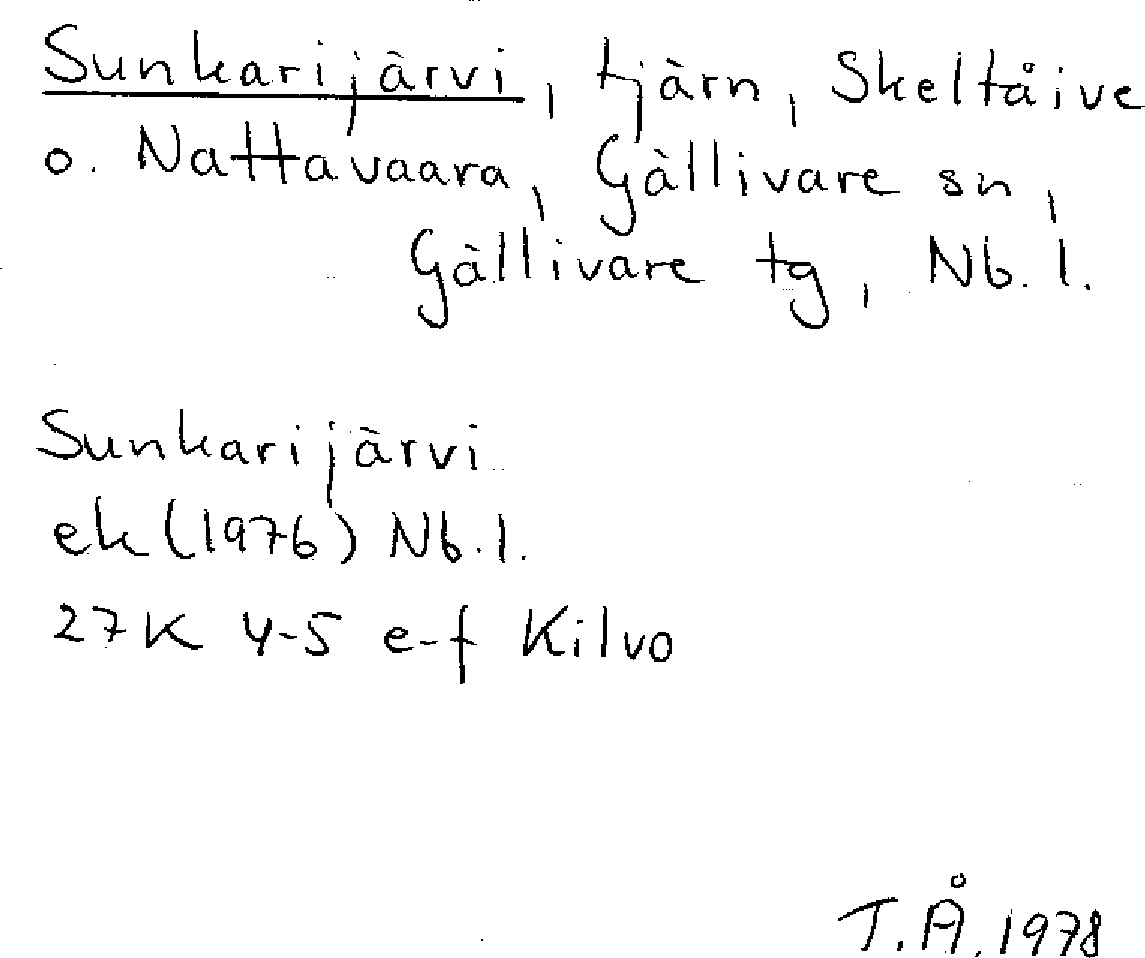 Sunkarijärvi, tjärn, Skeltåive
o. Nattavaara, Gällivare sn,
Gällivare tg, Nb. l.
Sunkarijärvi
ek (1976) Nb. l.
27K 4-5 e-f Kilvo
T.Å. 1978